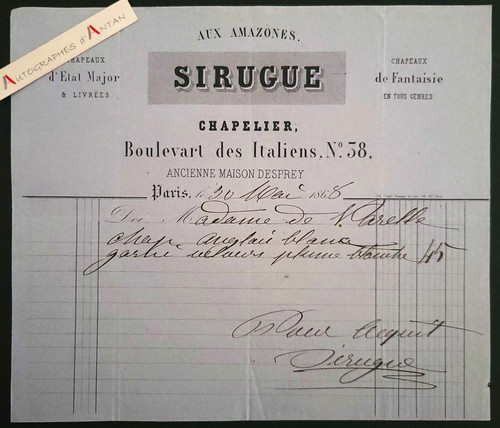 AUTOGRAPHES d'ANTAN
AUX AMAZONES.
CHAPEAUX
d'Etat Major
& LIVRÉES.
SIRUGUE
CHAPEAUX
de Fantaisie
EN TOUS GENRES
CHAPELIER,
Boulevart des Italiens. No. 38.
ANCIENNE MAISON DESPREY
Paris, le 20 Mai 1868
Doit Madame de
chap anglais blanc
garni velours plume blanche 45
Pour Acquit
Sirugue